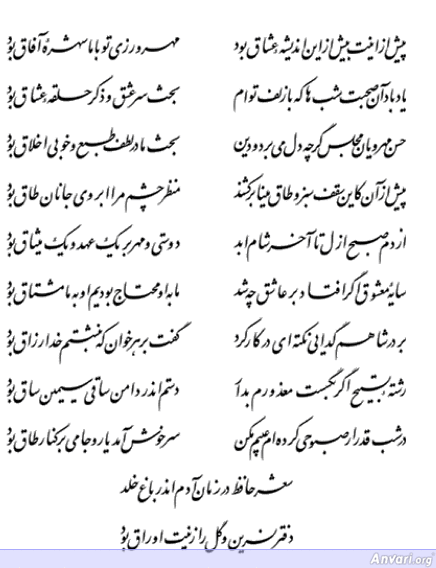 پیش از اینت بیش از این اندیشهٔ عشاق بود مهرورزی تو با ما شهرهٔ آفاق بود
یاد باد آن صحبت شب ها که با زلف توام بحث سر عشق و ذکر حلقه عشاق بود
حسن مهرویان مجلس گرچه دل می برد و دین بحث ما در لطف طبع و خوبی اخلاق بود
پیش از آن کاین سقف سبز و طاق مینا برکشند منظر چشم مرا ابروی جانان طاق بود
از دم صبح ازل تا آخر شام ابد دوستی و مهر بر یک عهد و یک میثاق بود
سایهٔ معشوق اگر افتاد بر عاشق چه شد ما به او محتاج بودیم او به ما مشتاق بود
بر در شاهم گدایی نکته ای در کار کرد گفت بر هر خوان که بنشستم خدا رزاق بود
رشتهٔ تسبیح اگر بگسست معذورم بدار دستم اندر دامن ساقی سیمین ساق بود
در شب قدر ار صبوحی کرده ام عیبم مکن سرخوش آمد یار و جامی بر کنار طاق بود
شعر حافظ در زمان آدم اندر باغ خلد
دفتر نسرین و گل را زینت اوراق بود
Anvari.org